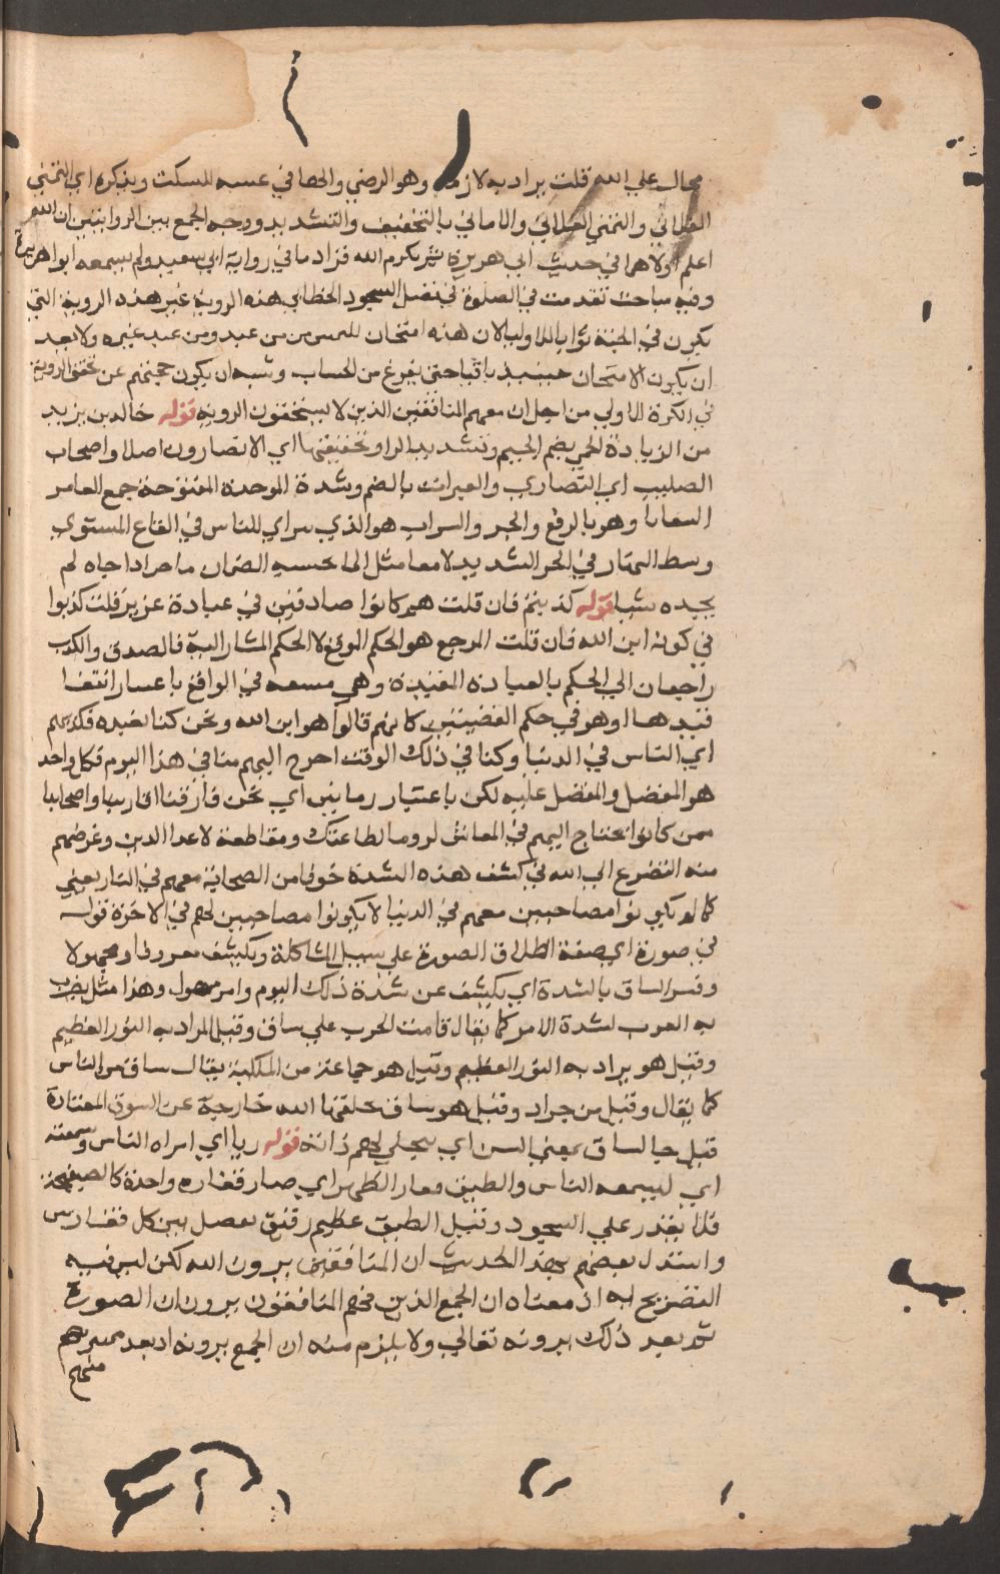 محال علي الله قلت يراد به لازمه وهو الرضي والخطا في عسه للسكت ويذكره اي التمني
الفلاني والتمني الفلاني والاماني بالتخفيف والتشديد ووجه الجمع بين الروايتين ان الله
اعلم اولا هما في حديث ابي هريرة ثم تكرم الله فزاد ما في رواية ابي سعيد ولم يسمعه ابو هريرة
وفيه مباحث تقدمت في الصلوة في فضل السجود الخطابي هذه الروية غير هذه الروية التي
يكون في الجنة ثوابا للاوليا لان هذه امتحان للتمييز بين من عبد ومن عبد غيره ولا بعد
ان يكون الامتحان حينيذ باقيا حتي يفرغ من الحساب ويشبه ان يكون حجبهم عن تحقق الروية
في الكرة الاولي من اجل ان معهم المنافقين الذين لا يستحقون الروية قوله خالد بن يزيد
من الزيادة الجمحي بضم الجيم وتشديد الراو تخفيفها اي الانصارون اصلا واصحاب
الصليب اي النصاري والغبرات بالضم وشدة الموحدة المفتوحة جمع الغابر
البقايا وهو بالرفع والجر والسراب هو الذي يتراي للناس في القاع المستوي
وسط النهار في الحر الشديد لامعا مثل الما يحسبه الظمان ما حتي اذا جاه لم
يجده شيا قوله كذبتم فان قلت هم كانوا صادقين في عبادة عزير قلت كذبوا
في كونه ابن الله فان قلت المرجع هو الحكم الموقع لا الحكم المشار اليه فالصدق والكذب
راجعان الي الحكم بالعبادة المقيدة وهي منتفية في الواقع باعتبار انتفا
قيدها او هو في حكم القضيتين كانهم قالوا هو ابن الله ونحن كنا نعبده فكذبهم
اي الناس في الدنيا وكنا في ذلك الوقت احوج اليهم منا في هذا اليوم فكل واحد
هو المفضل والمفضل عليه لكن باعتبار زمانين اي نحن فارقنا اقاربنا واصحابنا
ممن كانوا يحتاج اليهم في المعاش لزوما لطاعتك ومقاطعة لاعدا الدين وغرضهم
منه التضرع الي الله في كشف هذه الشدة خوفا من الصحابة معهم في النار يعني
كما لم يكونوا مصاحبين معهم في الدنيا لا يكونوا مصاحبين لهم في الاخرة قوله
في صورة اي صفة اطلاق الصورة علي سبيل المشاكلة ويكشف معروفا ومجهولا
وفسر الساق بالشدة اي يكشف عن شدة ذلك اليوم وامر مهول وهذا مثل يضرب
به العرب لشدة الامر كما يقال قامت الحرب علي ساق وقيل المراد به النور العظيم
وقيل هو يراد به النور العظيم وقيل هو جماعة من الملئكة يقال ساق من الناس
كما يقال رجل من جراد وقيل هو ساق خلقها الله خارجة عن السوق المعتادة
قيل جا الساق بمعني النفس اي يتجلي لهم ذاته قوله ريا اي ليراه الناس وسمعة
اي ليسمعه الناس والطبق فقار الظهر اي صار فقاره واحدة كالصفيحة
فلا يقدر علي السجود وقيل الطبق عظيم رقيق يفصل بين كل فقارين
واستدل بعضهم بهذا الحديث ان المنافقين يرون الله لكن ليس فيه
التصريح به اذ معناه ان الجمع الذين فيهم المنافقون يرون الصورة
ثم بعد ذلك يرونه تعالي ولا يلزم منه ان الجمع يرونه او بعد تمييزهم
منهم